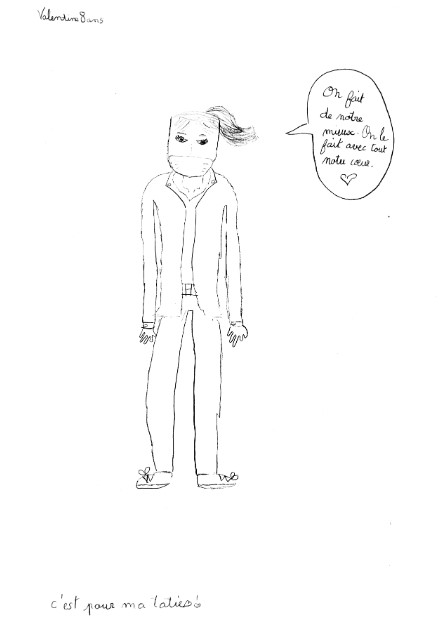 Valentine 8 ans
On fait
de notre
mieux. On le
fait avec tout
notre cœur.
c'est pour ma tatie